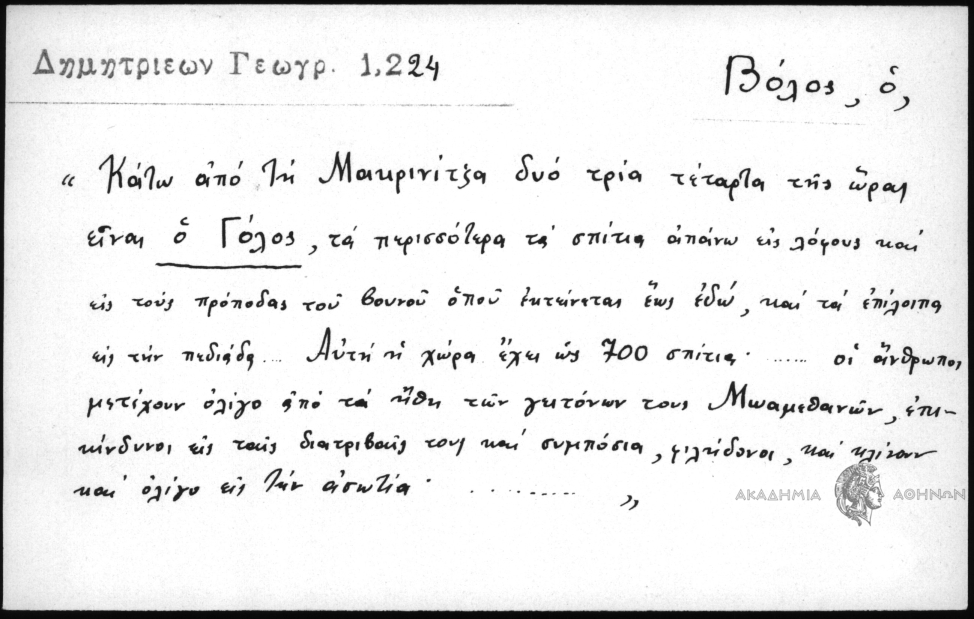 Δημητριεων Γεωγρ. 1,224
Βόλος, ὁ,
“ Κάτω ἀπό τή Μακρινίτζα δυό τρία τέταρτα τῆς ὥρας
εἶναι ὁ Γόλος, τά περισσότερα τά σπίτια ἀπάνω εἰς λόφους καί
εἰς τούς πρόποδας τοῦ βουνοῦ ὁποῦ ἐκτείνεται ἕως ἐδώ, καί τά ἐπίλοιπα
εἰς τήν πεδιάδα... Αὐτή ἡ χώρα ἔχει ὡς 700 σπίτια· ...... οἱ ἄνθρωποι
μετέχουν ὀλίγο ἀπό τά ἤθη τῶν γειτόνων τους Μωαμεθανῶν, ἐπι-
κίνδυνοι εἰς ταῖς διατριβαῖς τους καί συμπόσια, φιλήδονοι, καί κλίνουν
καί ὀλίγο εἰς τήν ἀσωτία· .......... ”
ΑΚΑΔΗΜΙΑ ΑΘΗΝΩΝ